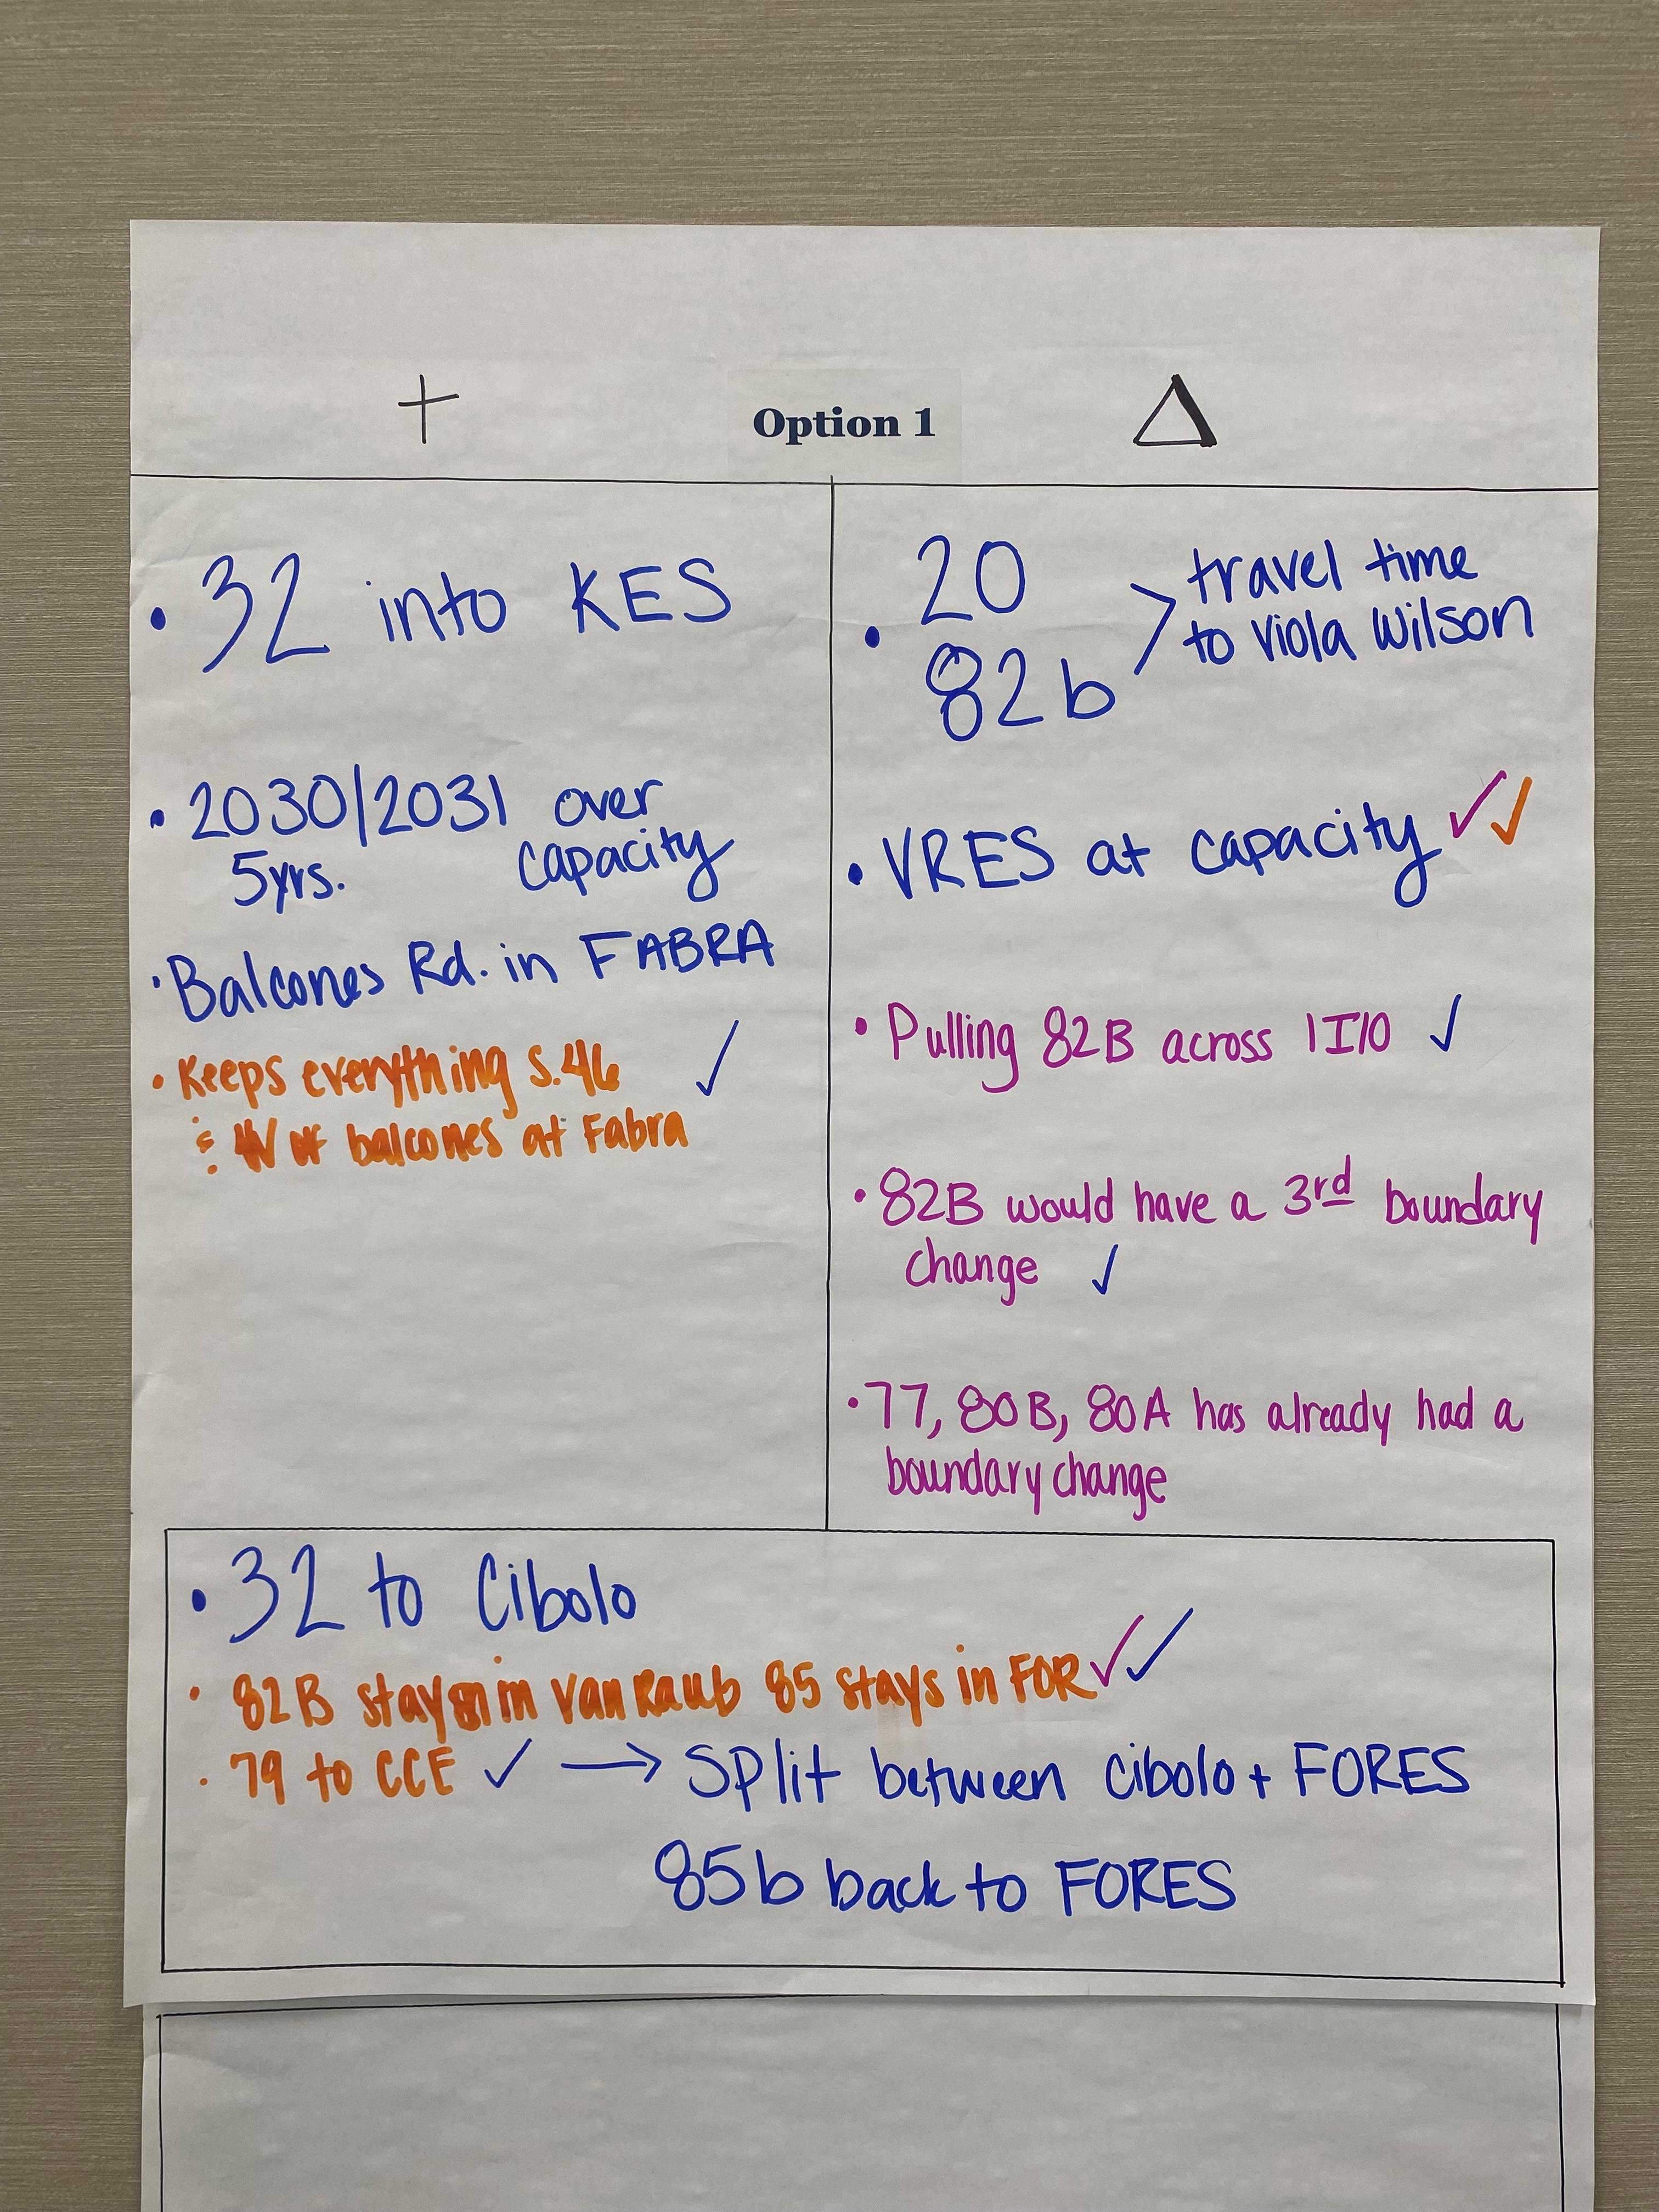 + Option 1 Δ
• 32 into KES
• 2030/2031 over
5yrs. capacity
• Balcones Rd. in FABRA
• Keeps everything S.46 ✓
& W of balcones at Fabra
• 20 > travel time
82b to Viola Wilson
• VRES at capacity ✓✓
• Pulling 82B across I I10 ✓
• 82B would have a 3rd boundary
change ✓
• 77, 80B, 80A has already had a
boundary change
• 32 to Cibolo
• 82B stays in Van Raub 85 stays in FOR ✓✓
• 79 to CCE ✓ → Split between Cibolo + FORES
85b back to FORES